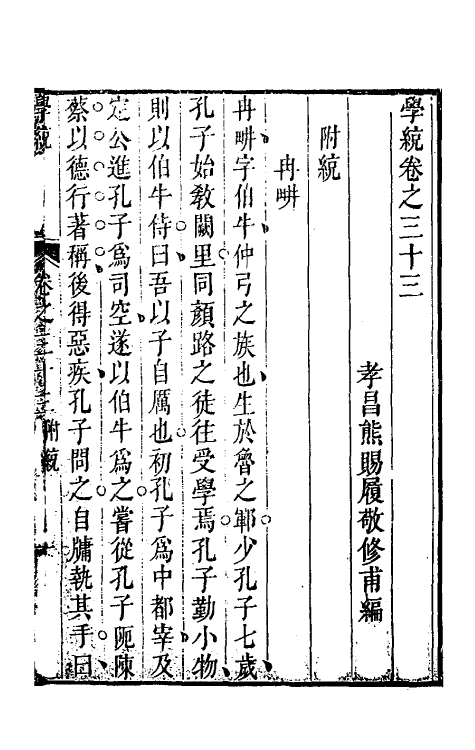 學統卷之三十三
孝昌熊賜履敬修甫編
附統
冉畊
冉畊字伯牛仲弓之族也生於魯之鄆少孔子七歲
孔子始敎闕里同顏路之徒往受學焉孔子勤小物
則以伯牛侍曰吾以子自厲也初孔子爲中都宰及
定公進孔子爲司空遂以伯牛爲之嘗從孔子阨陳
蔡以德行著稱後得惡疾孔子問之自牖執其手曰
學統
卷之三十三
附統